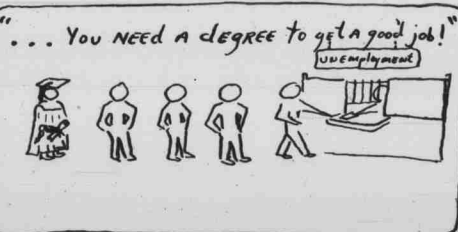 "... You NEED A dEgREE to get A good job!"
UNEmployment